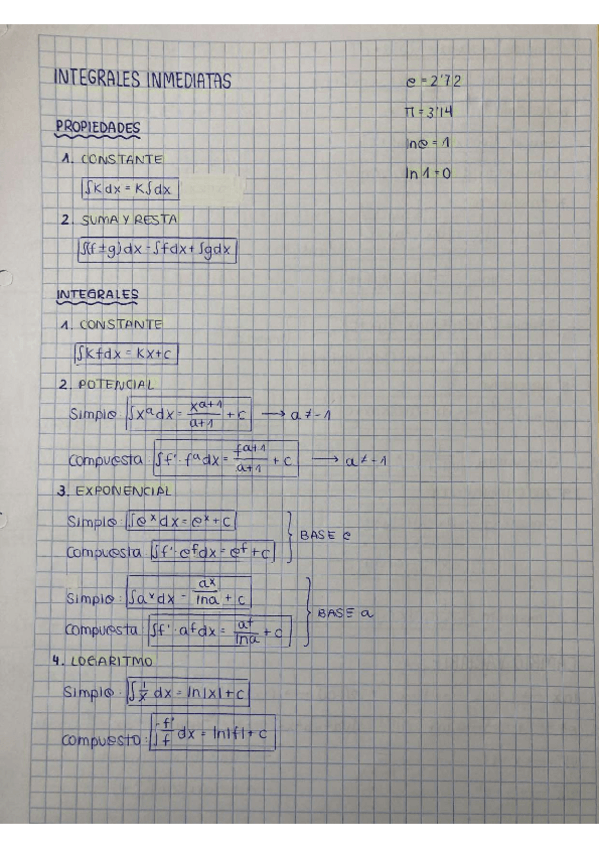 INTEGRALES INMEDIATAS
e = 2'72
π = 3'14
ln e = 1
ln 1 = 0
PROPIEDADES
1. CONSTANTE
∫K dx = K∫dx
2. SUMA Y RESTA
∫(f ± g) dx = ∫f dx + ∫g dx
INTEGRALES
1. CONSTANTE
∫K f dx = Kx + c
2. POTENCIAL
Simple: ∫x^a dx = x^(a+1)/(a+1) + c → a ≠ -1
Compuesta: ∫f' · f^a dx = f^(a+1)/(a+1) + c → a ≠ -1
3. EXPONENCIAL
Simple: ∫e^x dx = e^x + c
Compuesta: ∫f' · e^f dx = e^f + c
BASE e
Simple: ∫a^x dx = a^x/ln a + c
Compuesta: ∫f' · a^f dx = a^f/ln a + c
BASE a
4. LOGARITMO
Simple: ∫1/x dx = ln|x| + c
Compuesto: ∫f'/f dx = ln|f| + c